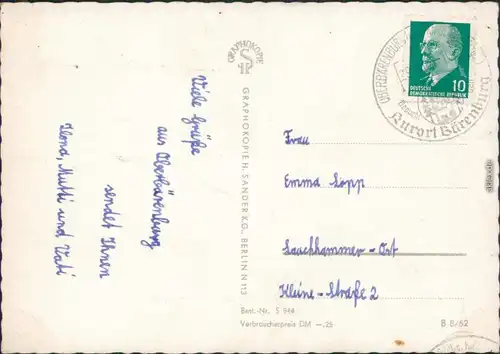 Viele Grüße
aus Oberbärenburg
sendet Ihnen
Ilona, Mutti und Vati
GRAPHOKOPIE
GRAPHOKOPIE H. SANDER K.G., BERLIN N 113
DEUTSCHE
DEMOKRATISCHE REPUBLIK
10
Kurort Bärenburg
Frau
Emma Lopp
Lauchhammer-Ost
Kleine-Straße 2
Best.-Nr. S 944
Verbraucherpreis DM —,25
B 8/62